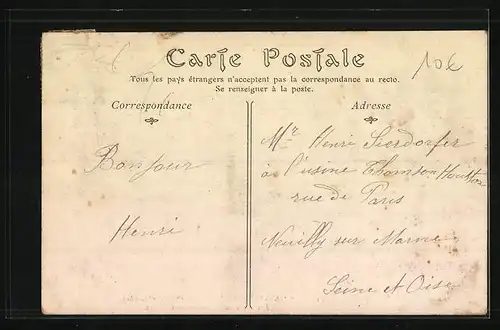 10€
Carte Postale
Tous les pays étrangers n'acceptent pas la correspondance au recto.
Se renseigner à la poste.
Correspondance
Adresse
Bonjour
Henri
Mr Henri
à l'usine Thomson Houston
rue de Paris
Neuilly sur Marne
Seine et Oise